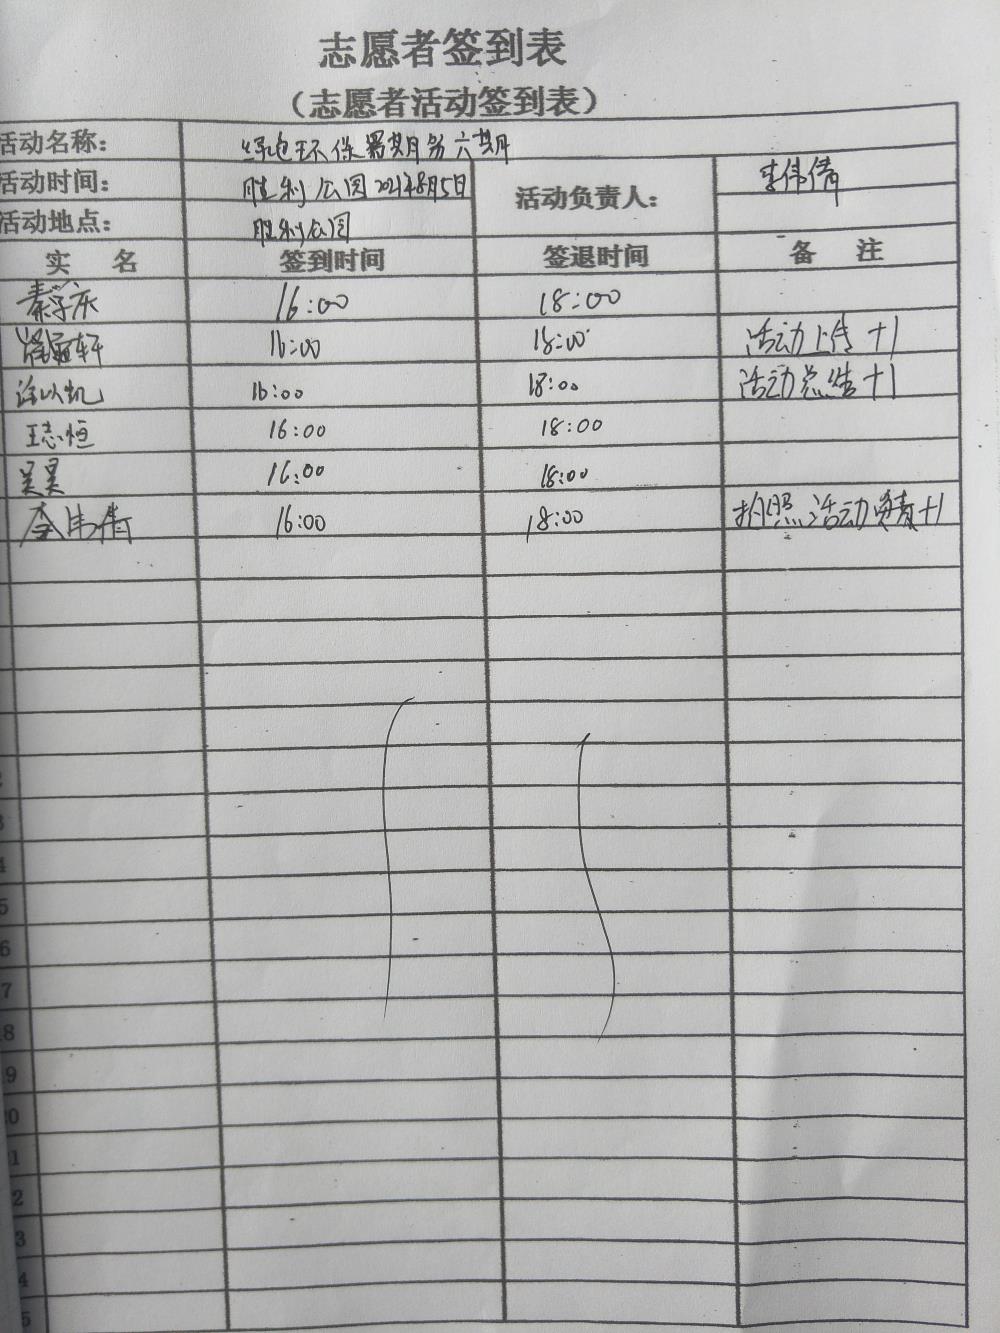 志愿者签到表
（志愿者活动签到表）
活动名称： 绿色环保暑期第六期
活动时间： 胜利公园2021年8月5日 活动负责人： 李伟倩
活动地点： 胜利公园
实 名 签到时间 签退时间 备 注
秦学庆 16:00 18:00
轩 16:00 18:00 活动上传+1
涂以凯 16:00 18:00 活动总结+1
王志恒 16:00 18:00
吴昊 16:00 18:00
李伟倩 16:00 18:00 拍照活动负责+1
2
3
4
5
6
7
18
19
20
21
2
3
4
5